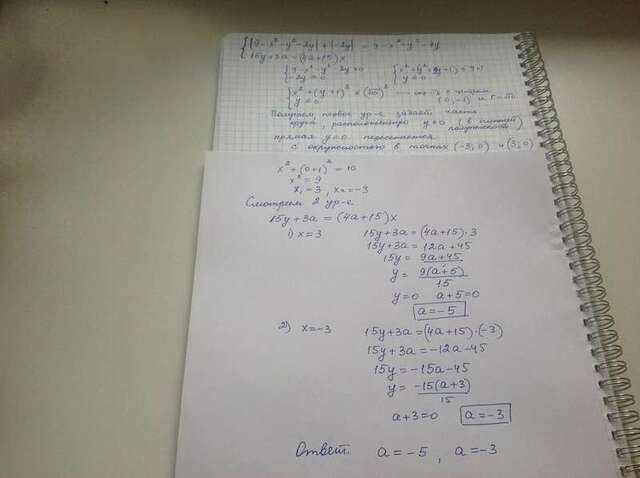 { |9-x²-y²-2y| + |-2y| = 9-x²-y²-4y
15y+3a=(4a+15)x
{ 9-x²-y²-2y≥0
-2y≥0
y≤0
{ x²+(y+1)²≤(√10)²
y≤0
Получаем, первое ур-е задает часть
круга, расположенную y≤0 (в нижней полуплоскости)
прямая y=0 пересекается
с окружностью в точках (-3;0) и (3;0)
x²+(0+1)²=10
x²=9
x₁=3, x₂=-3
Смотрем 2 ур-е
15y+3a=(4a+15)x
1) x=3
15y+3a=(4a+15)·3
15y+3a=12a+45
15y=9a+45
y=9(a+5)/15
y=0 a+5=0
a=-5
2) x=-3
15y+3a=(4a+15)·(-3)
15y+3a=-12a-45
15y=-15a-45
y=-15(a+3)/15
a+3=0 a=-3
Ответ. a=-5, a=-3